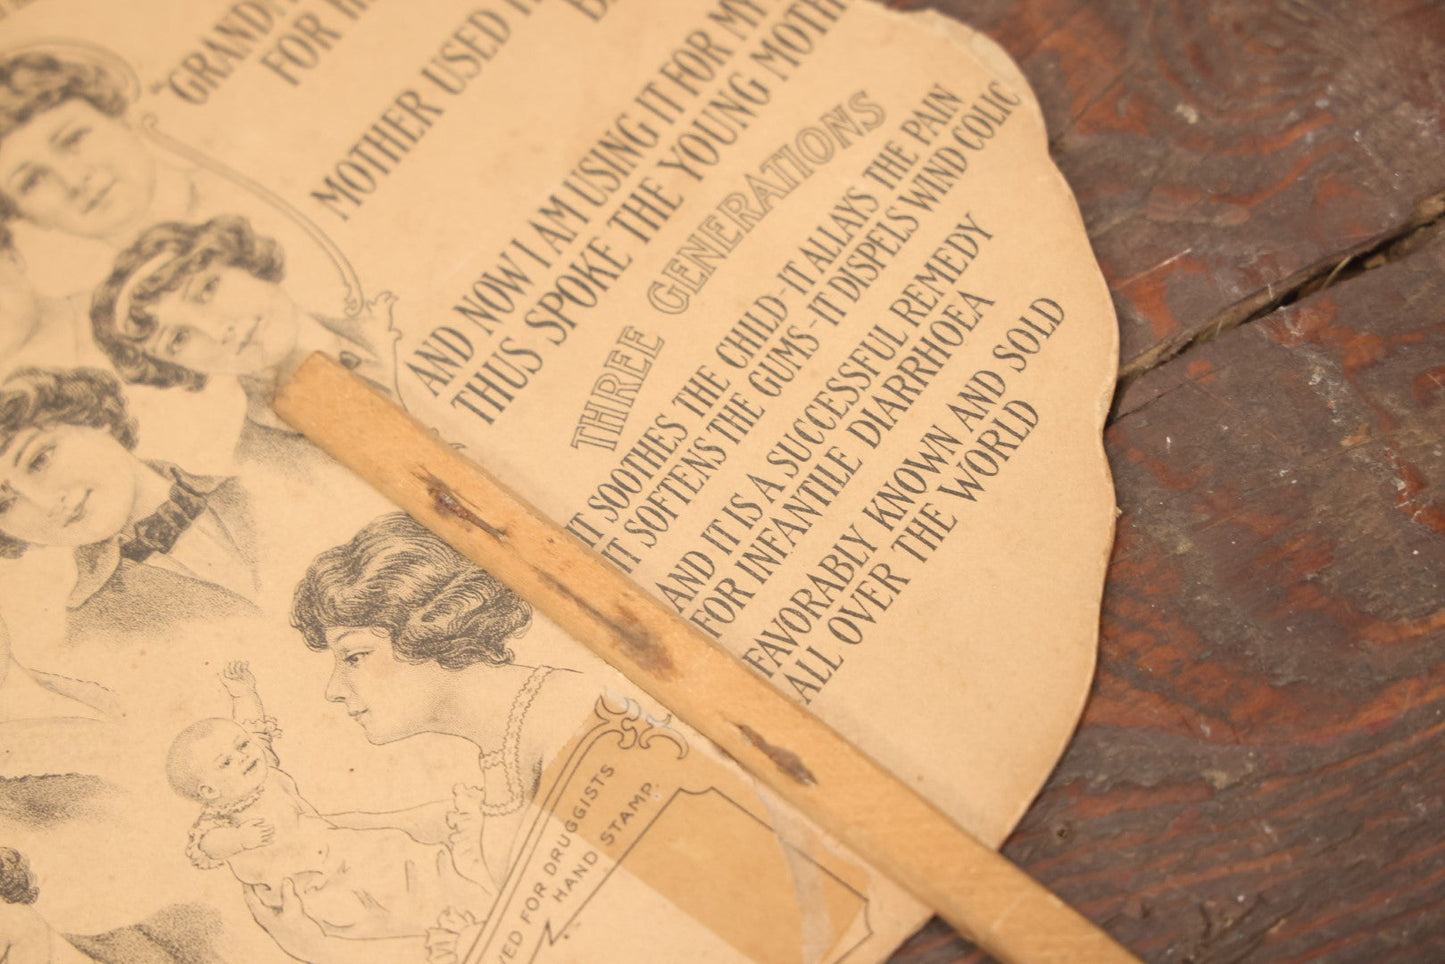 "GRAND
FOR
MOTHER USED
AND NOW I AM USING IT FOR MY
THUS SPOKE THE YOUNG MOTH
THREE GENERATIONS
IT SOOTHES THE CHILD - IT ALLAYS THE PAIN
IT SOFTENS THE GUMS - IT DISPELS WIND COLIC
AND IT IS A SUCCESSFUL REMEDY
FOR INFANTILE DIARRHOEA
FAVORABLY KNOWN AND SOLD
ALL OVER THE WORLD
VED FOR DRUGGISTS
HAND STAMP